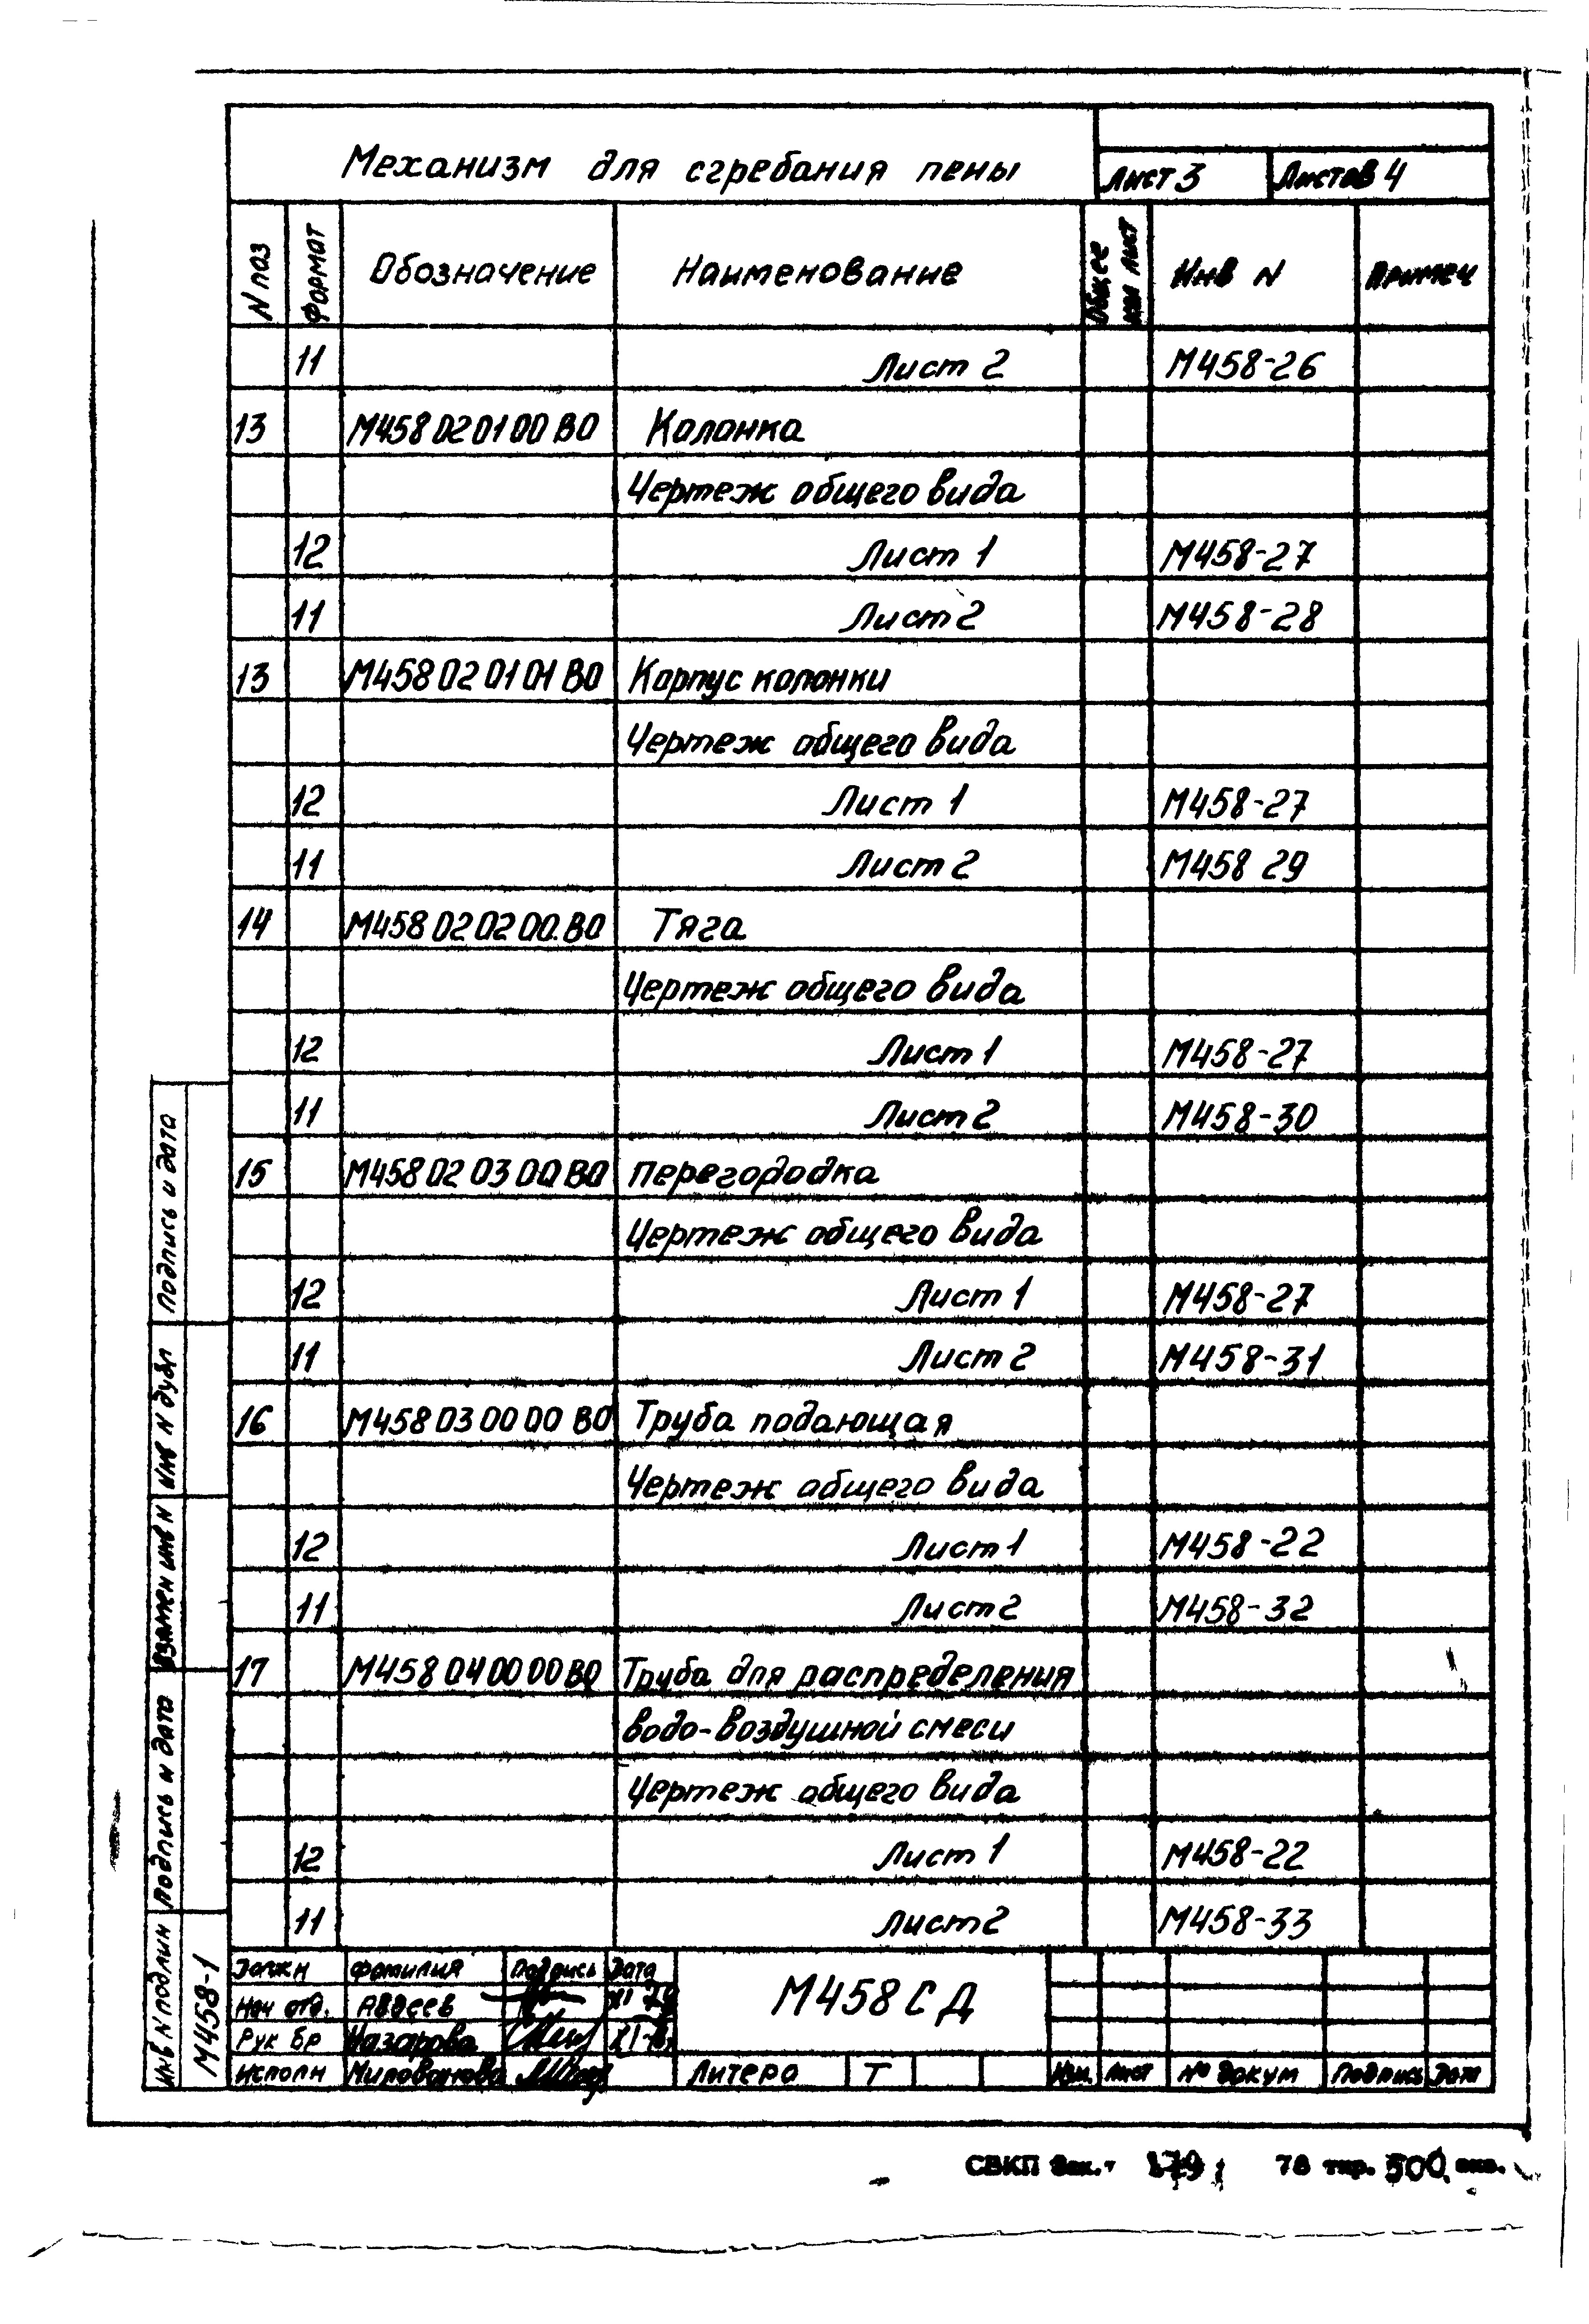 Механизм для сгребания пены
Лист 3 Листов 4
N поз Формат Обозначение Наименование Общее кол лист Инв N Примеч
11 Лист 2 М458-26
13 М458 02 01 00 ВО Колонка
Чертеж общего вида
12 Лист 1 М458-27
11 Лист 2 М458-28
13 М458 02 01 01 ВО Корпус колонки
Чертеж общего вида
12 Лист 1 М458-27
11 Лист 2 М458 29
14 М458 02 02 00.ВО Тяга
Чертеж общего вида
12 Лист 1 М458-27
11 Лист 2 М458-30
15 М458 02 03 00 ВО перегородка
Чертеж общего вида
12 Лист 1 М458-27
11 Лист 2 М458-31
16 М458 03 00 00 ВО Труба подающая
Чертеж общего вида
12 Лист 1 М458-22
11 Лист 2 М458-32
17 М458 04 00 00 ВО Труба для распределения
водо-воздушной смеси
Чертеж общего вида
12 Лист 1 М458-22
11 Лист 2 М458-33
Должн Фамилия Подпись Дата
Нач отд. Авдеев XI 79
Рук бр Назарова
Исполн Милованова
М458 СД
Литера Т
Изм. Лист № докум Подпись Дата
Подпись и дата
Инв N дубл
Взамен инв N
Подпись и дата
Инв N подлин
М458-1
СВКП Зак. 78 тир. 500 экз.